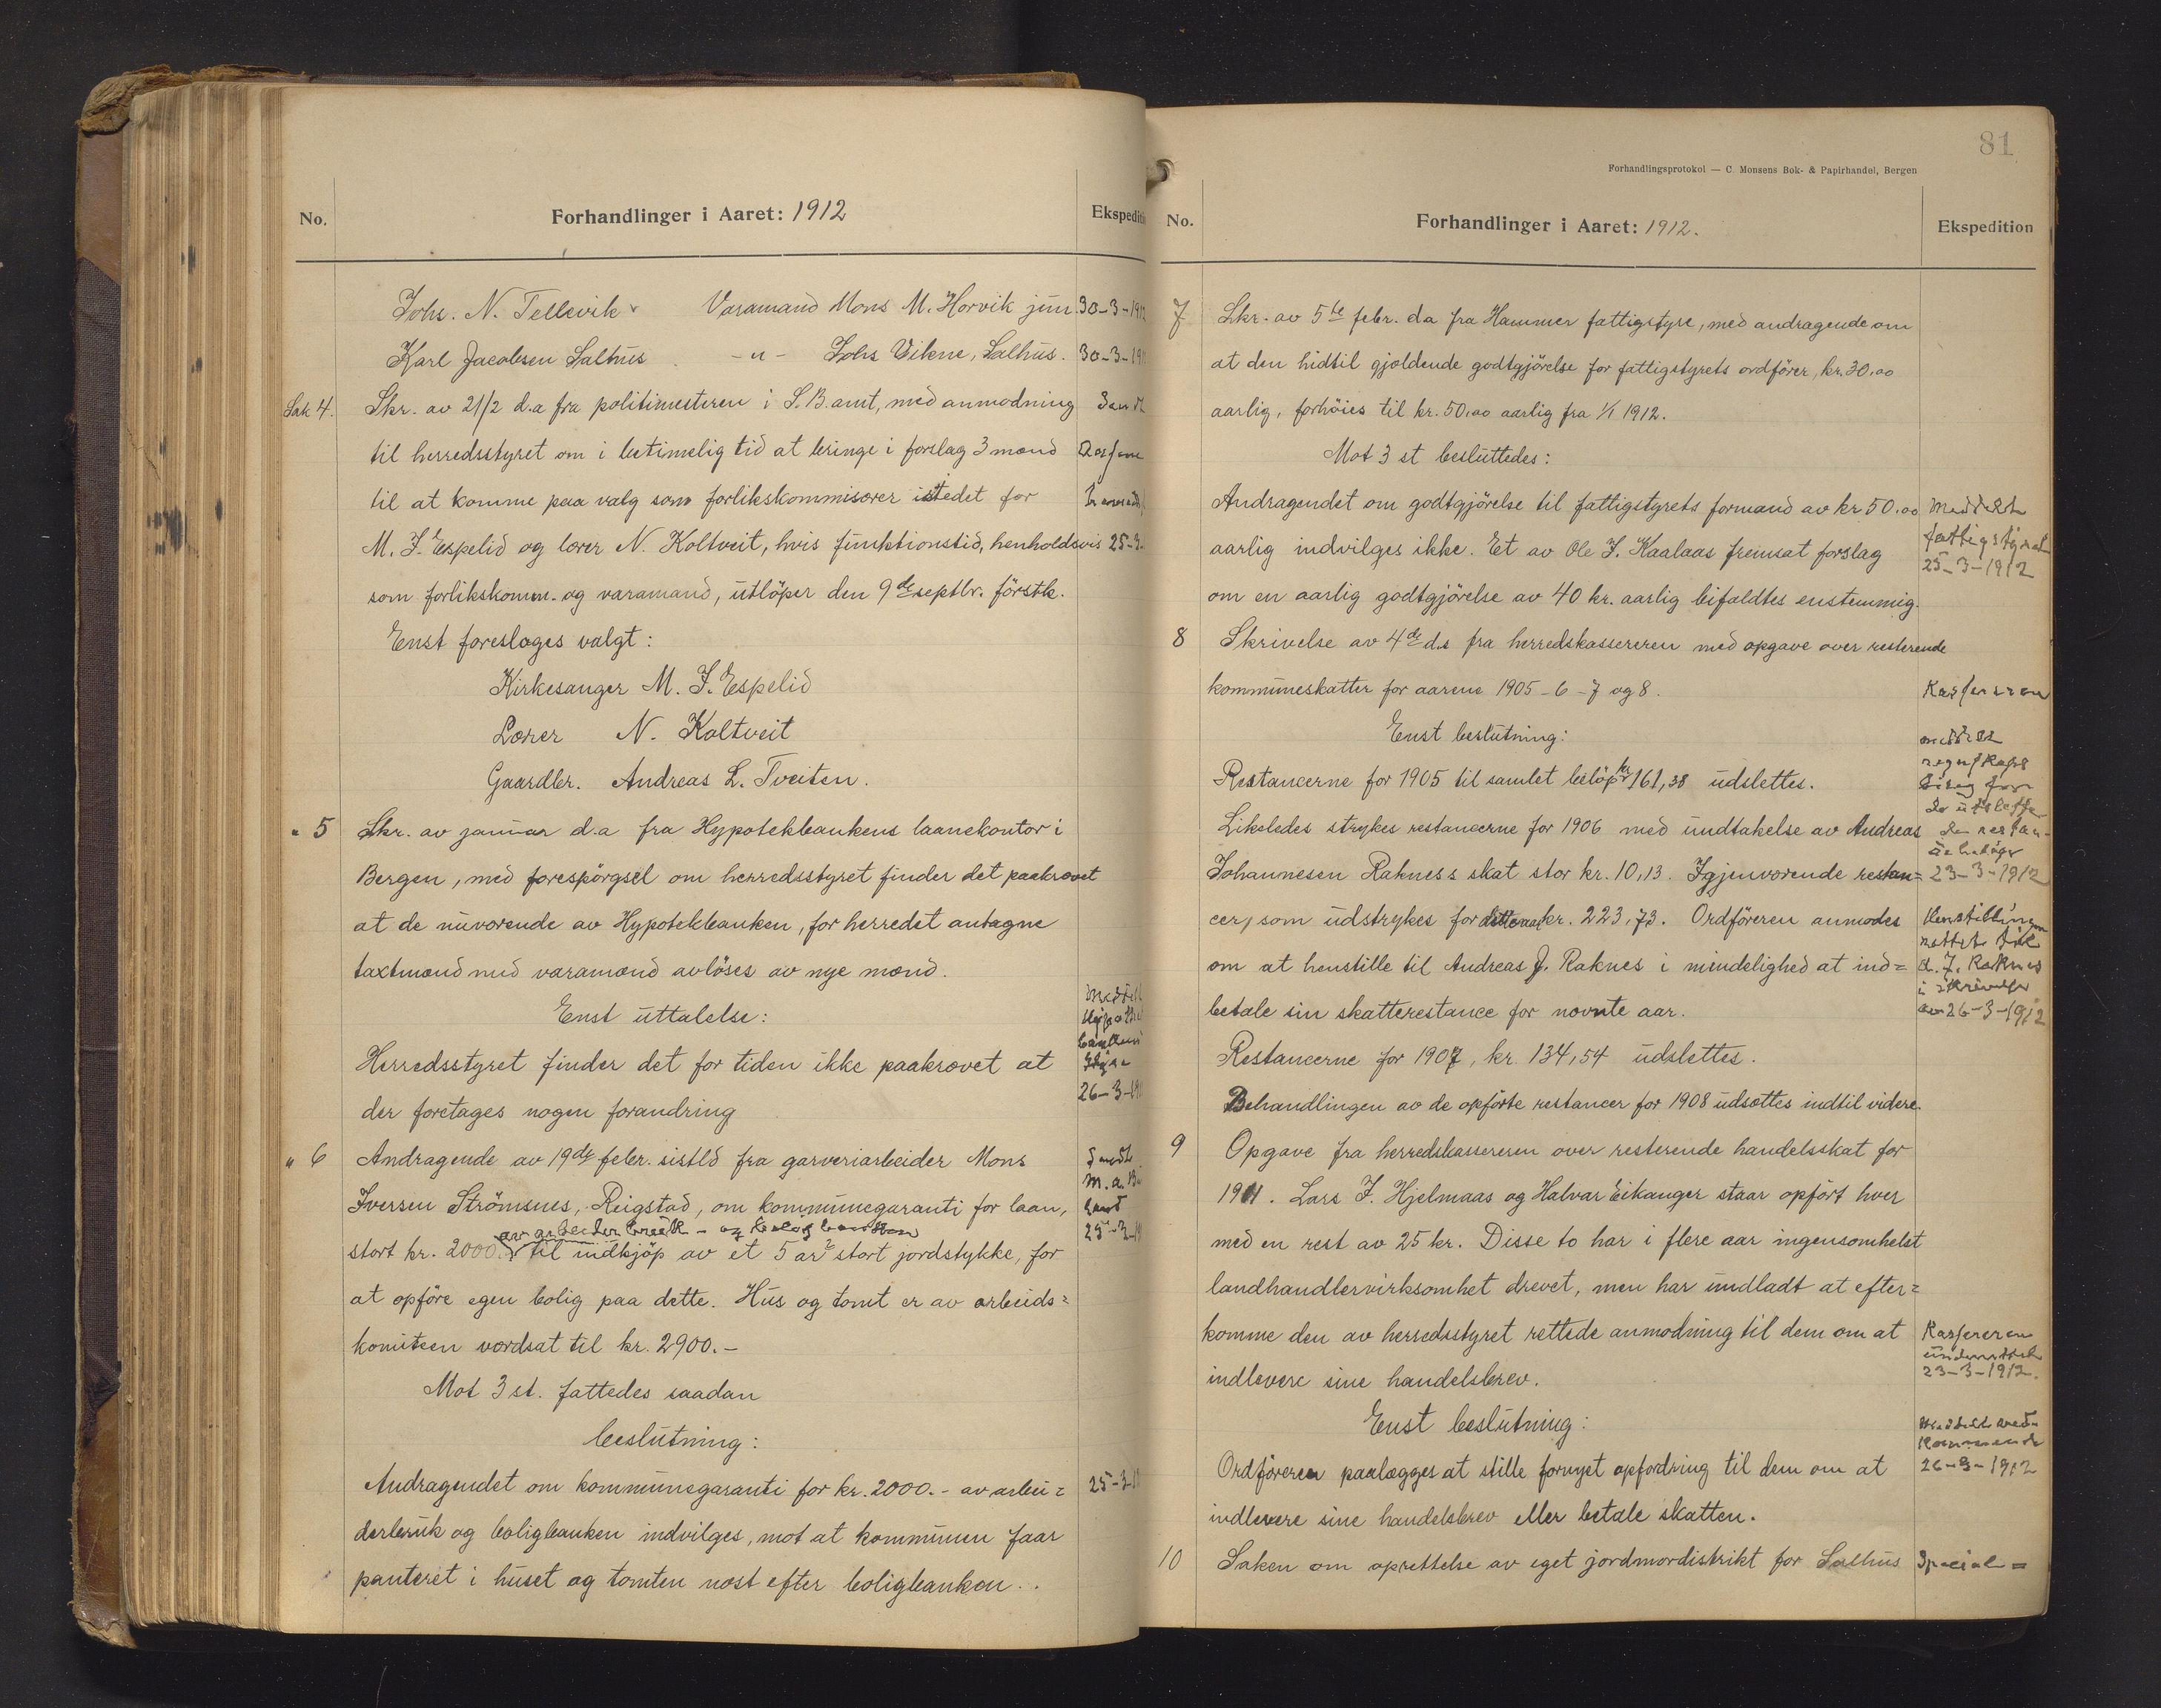 No.
Forhandlinger i Aaret: 1912
Johs. N. Tellevik Varamand Mons M. Horvik jun. 30-3-1912
Karl Jacobsen Salhus -"- Johs Vikne, Salhus. 30-3-
Sak 4. Skr. av 21/2 d.a fra politimesteren i S.B.amt, med anmodning
til herredsstyret om i betimelig tid at bringe i forslag 3 mænd
til at komme paa valg som forlikskommisærer istedet for
M. J. Espelid og lærer N. Koltveit, hvis funktionstid, henholdsvis 25-3-
som forlikskomm. og varamand, utlöper den 9de septbr. förstk.
Enst foreslåges valgt:
Kirkesanger M. J. Espelid
Lærer N. Koltveit
Gaardbr. Andreas L. Tveiten.
" 5 Skr. av januar d.a fra Hypotekbankens laanekontor i
Bergen, med forespörgsel om herredsstyret finder det paakrævet
at de nuværende av Hypotekbanken, for herredet antagne
taxtmænd med varamænd avlöses av nye mænd.
Enst uttalelse:
Herredsstyret finder det for tiden ikke paakrævet at
26-3-
der foretages nogen forandring
" 6 Andragende av 19de febr. sistld fra garveriarbeider Mons
Iversen Strömsnes, Reigstad, om kommunegaranti for laan,
av arbeiderbruk- og boligbanken
stort kr. 2000. til indkjöp av et 5 ar² stort jordstykke, for
25-3-
at opföre egen bolig paa dette. Hus og tomt er av arbeids=
komiteen værdsat til kr. 2900.-
Mot 3 st. fattedes saadan
beslutning:
Andragendet om kommunegaranti for kr. 2000.- av arbei= 25-3-
derbruk og boligbanken indvilges, mot at kommunen faar
panteret i huset og tomten næst efter boligbanken.
81
Forhandlingsprotokol — C. Monsens Bok- & Papirhandel, Bergen
No.
Forhandlinger i Aaret: 1912.
Ekspedition
7 Skr. av 5te febr. da fra Hammer fattigstyre, med andragende om
at den hidtil gjældende godtgjörelse for fattigstyrets ordförer, kr. 30.00
aarlig, forhöies til kr. 50,00 aarlig fra 1/1 1912.
Mot 3 st besluttedes:
Andragendet om godtgjörelse til fattigstyrets formand av kr 50.00
aarlig indvilges ikke. Et av Ole J. Kaalaas fremsat forslag
om en aarlig godtgjörelse av 40 kr. aarlig bifaldtes enstemmig.
Meddelt
fattigstyret
25-3-1912
8 Skrivelse av 4de ds fra herredskassereren med opgave over resterende
kommuneskatter for aarene 1905-6-7 og 8.
Enst beslutning:
Restancerne for 1905 til samlet belöp kr 161,38 udslettes.
Likeledes strykes restancerne for 1906 med undtakelse av Andreas
Johannesen Rakness skat stor kr. 10,13. Igjenværende restan=
cer, som udstrykes for dette aar kr. 223,73. Ordföreren anmodes
om at henstille til Andreas J. Raknes i mindelighed at ind=
betale sin skatterestance for nævnte aar.
Restancerne for 1907, kr. 134,54 udslettes.
Behandlingen av de opförte restancer for 1908 udsættes indtil videre.
Kassereren
meddelt
23-3-1912
Henstillingen
rettet til
A. J. Raknes
i skrivelse
av 26-3-1912
9 Opgave fra herredskassereren over resterende handelsskat for
1911. Lars J. Hjelmaas og Halvar Eikanger staar opfört hver
med en rest av 25 kr. Disse to har i flere aar ingensomhelst
landhandlervirksomhet drevet, men har undladt at efter=
komme den av herredsstyret rettede anmodning til dem om at
indlevere sine handelsbrev.
Enst beslutning:
Ordföreren paalægges at stille fornyet opfordring til dem om at
indlevere sine handelsbrev eller betale skatten.
Kassereren
underrettet
23-3-1912.
Meddelt ved-
kommende
26-3-1912
10 Saken om oprettelse av eget jordmordistrikt for Salhus
Special=